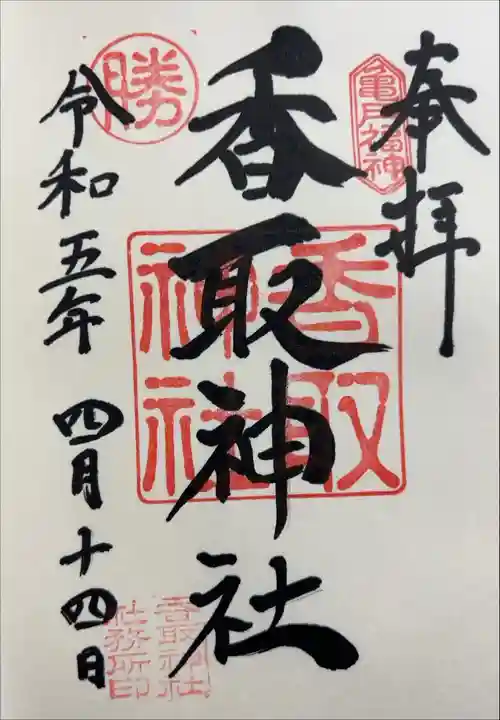 奉拝
亀戸福神
香取神社
香取
神社
勝
令和五年 四月十四日
香取神社
社務所印